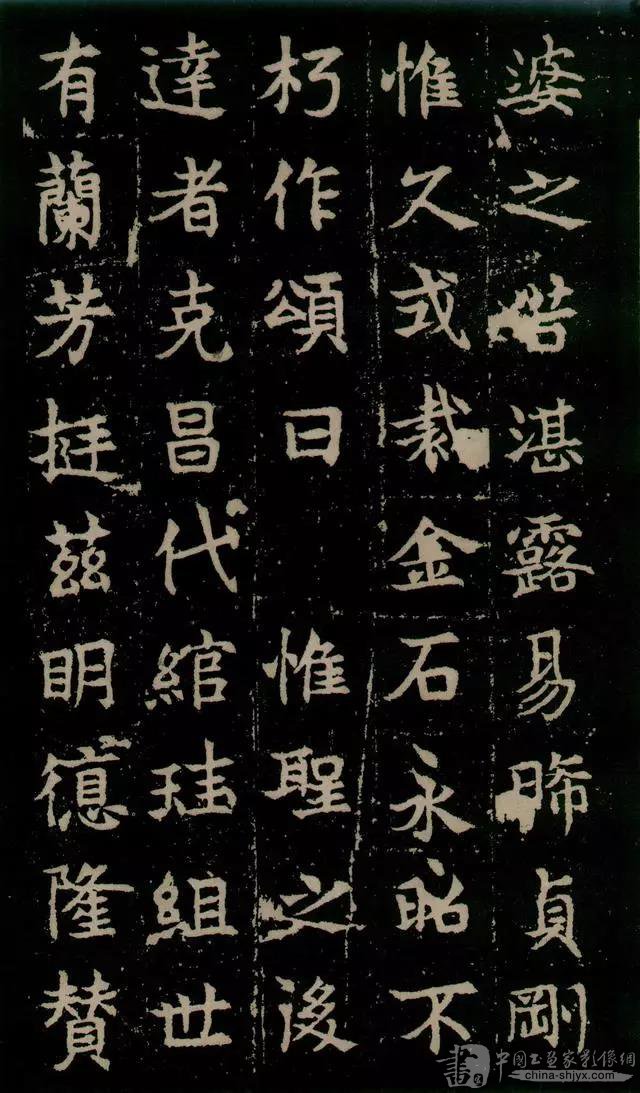 婆之喆湛露易晞貞剛
惟久式裁金石永昭不
朽作頌曰 惟聖之後
達者克昌代綰珪組世
有蘭芳挺茲明德隆贊
書 中國書畫家影像網
china-shjyx.com